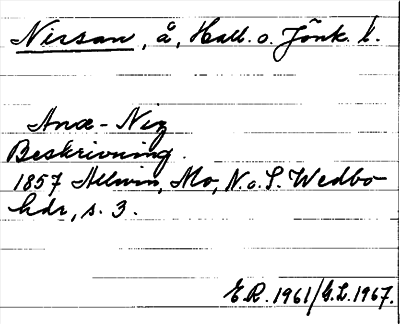 Nissan, å, Hall. o. Jönk. l.
Ana-Niz
Beskrivning.
1857 Allvin, Mo, N. o. S. Wedbo
hdr, s. 3.
E.R. 1961/G.L. 1967.